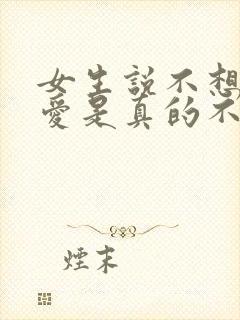 女生説不想
愛是真的不
煙末